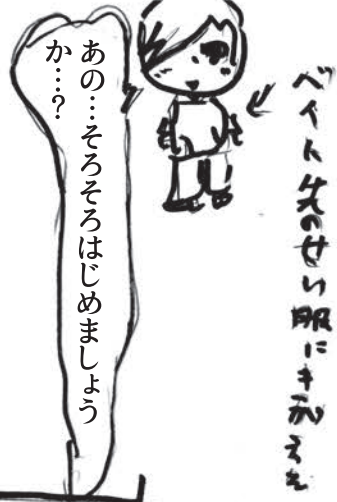 バイト先のせい服にキガえた
あの…そろそろはじめましょう
か…?